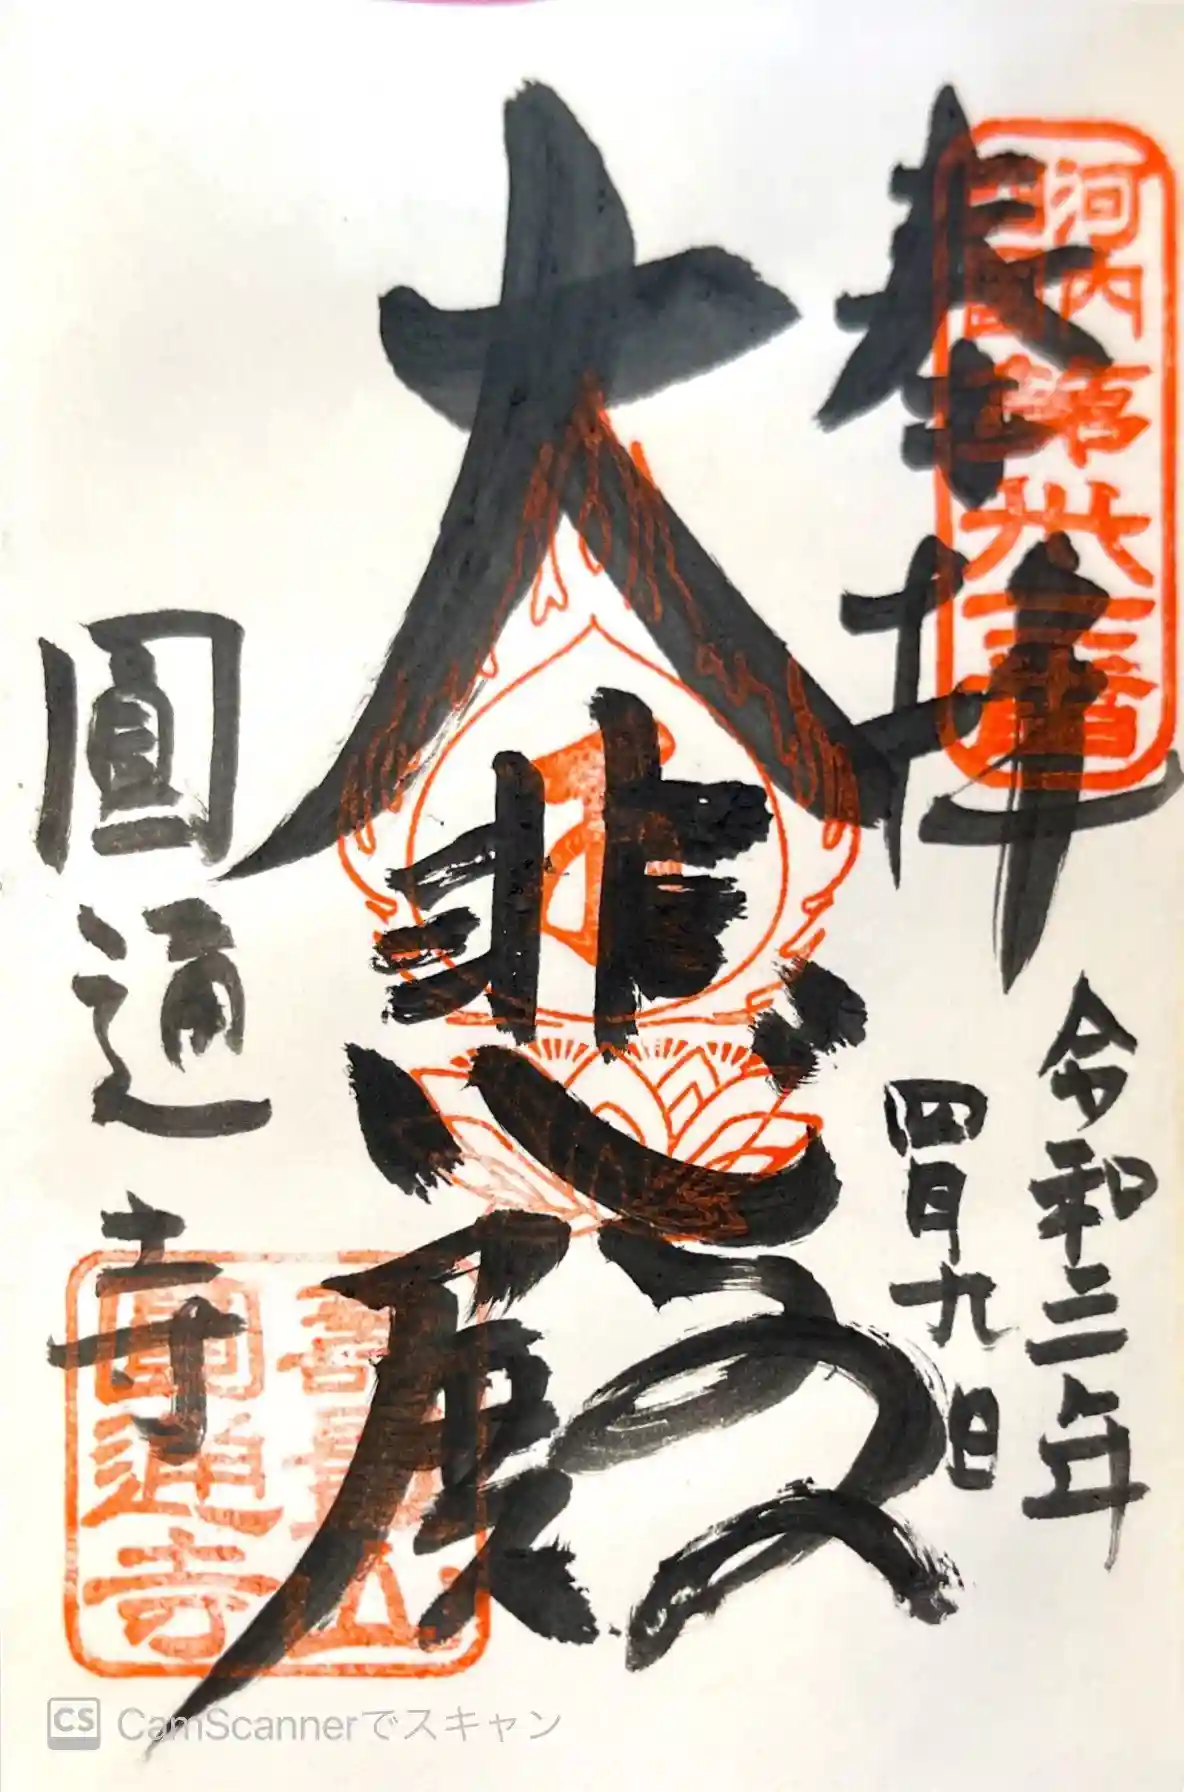 奉拝
令和三年
四月九日
大悲願
圓通寺
河内
西国
卅三番
圓通寺
CS CamScannerでスキャン